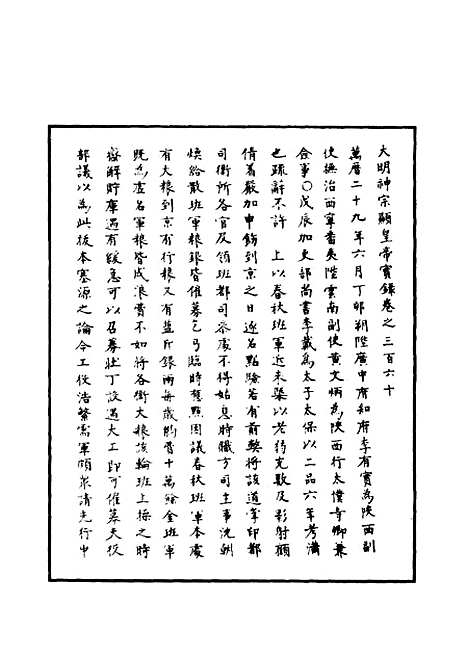 大明神宗顯皇帝實錄卷之三百六十
萬曆二十九年六月丁卯朔陞廣中府知府李有實為陝西副
使撫治西寧畨夷陞雲南副使黃文炳為陝西行太僕寺卿兼
僉事○戊辰加吏部尚書李戴為太子太保以二品六年考滿
也疏辭不許　上以春秋班軍近来槩以老弱充數及影射頂
倩着嚴加申飭到京之日逐名點驗若有前獘將該道掌印都
司衛所各官及領班都司叅處不得姑息時職方司主事沈朝
煥給散班軍糧銀皆催募乞丐臨時應點因議春秋班軍本處
有大糧到京有行糧又有鹽斤銀兩每歲所費十萬餘金班軍
既為虛名軍糧皆成浪費不如將各衛大糧俟輪班上操之時
徑解貯庫遇有緩急可以召募壯丁設遇大工即可催募夫役
部議以為此拔本塞源之論今工役浩繁需軍頗衆請先行申